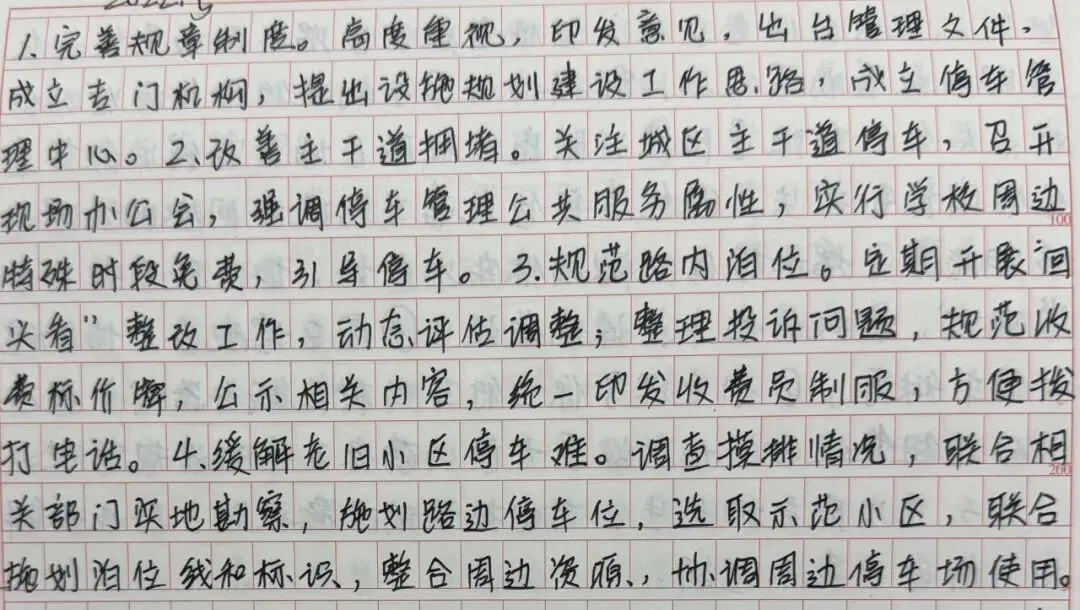 1、完善规章制度。高度重视,印发意见,出台管理文件,
成立专门机构,提出设施规划建设工作思路,成立停车管
理中心。2、改善主干道拥堵。关注城区主干道停车,召开
现场办公会,强调停车管理公共服务属性,实行学校周边
100
特殊时段免费,引导停车。3.规范路内泊位。定期开展“回
头看”整改工作,动态评估调整;整理投诉问题,规范收
费标价牌,公示相关内容,统一印发收费员制服,方便拨
打电话。4、缓解老旧小区停车难。调查摸排情况,联合相
200
关部门实地勘察,施划路边停车位,选取示范小区,联合
施划泊位线和标识,整合周边资源,协调周边停车场使用。